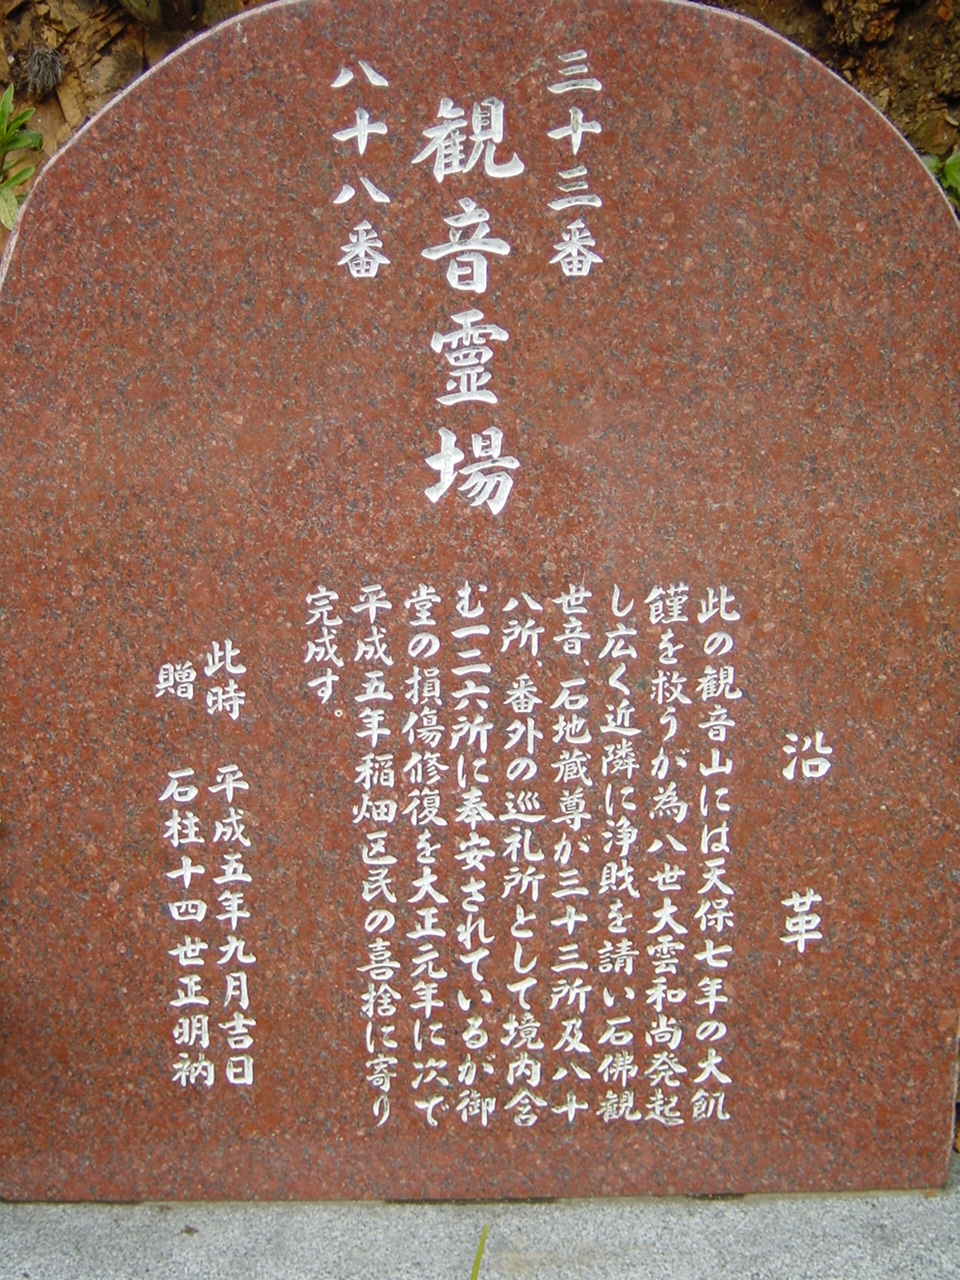 三十三番
観音霊場
八十八番
沿革
此の観音山には天保七年の大飢
饉を救うが為八世大雲和尚発起
し広く近隣に浄財を請い石佛観
世音、石地蔵尊が三十三所及八十
八所、番外の巡礼所として境内含
む一二六所に奉安されているが御
堂の損傷修復を大正元年に次で
平成五年稲畑区民の喜捨に寄り
完成す。
此時 平成五年九月吉日
贈 石柱十四世正明衲